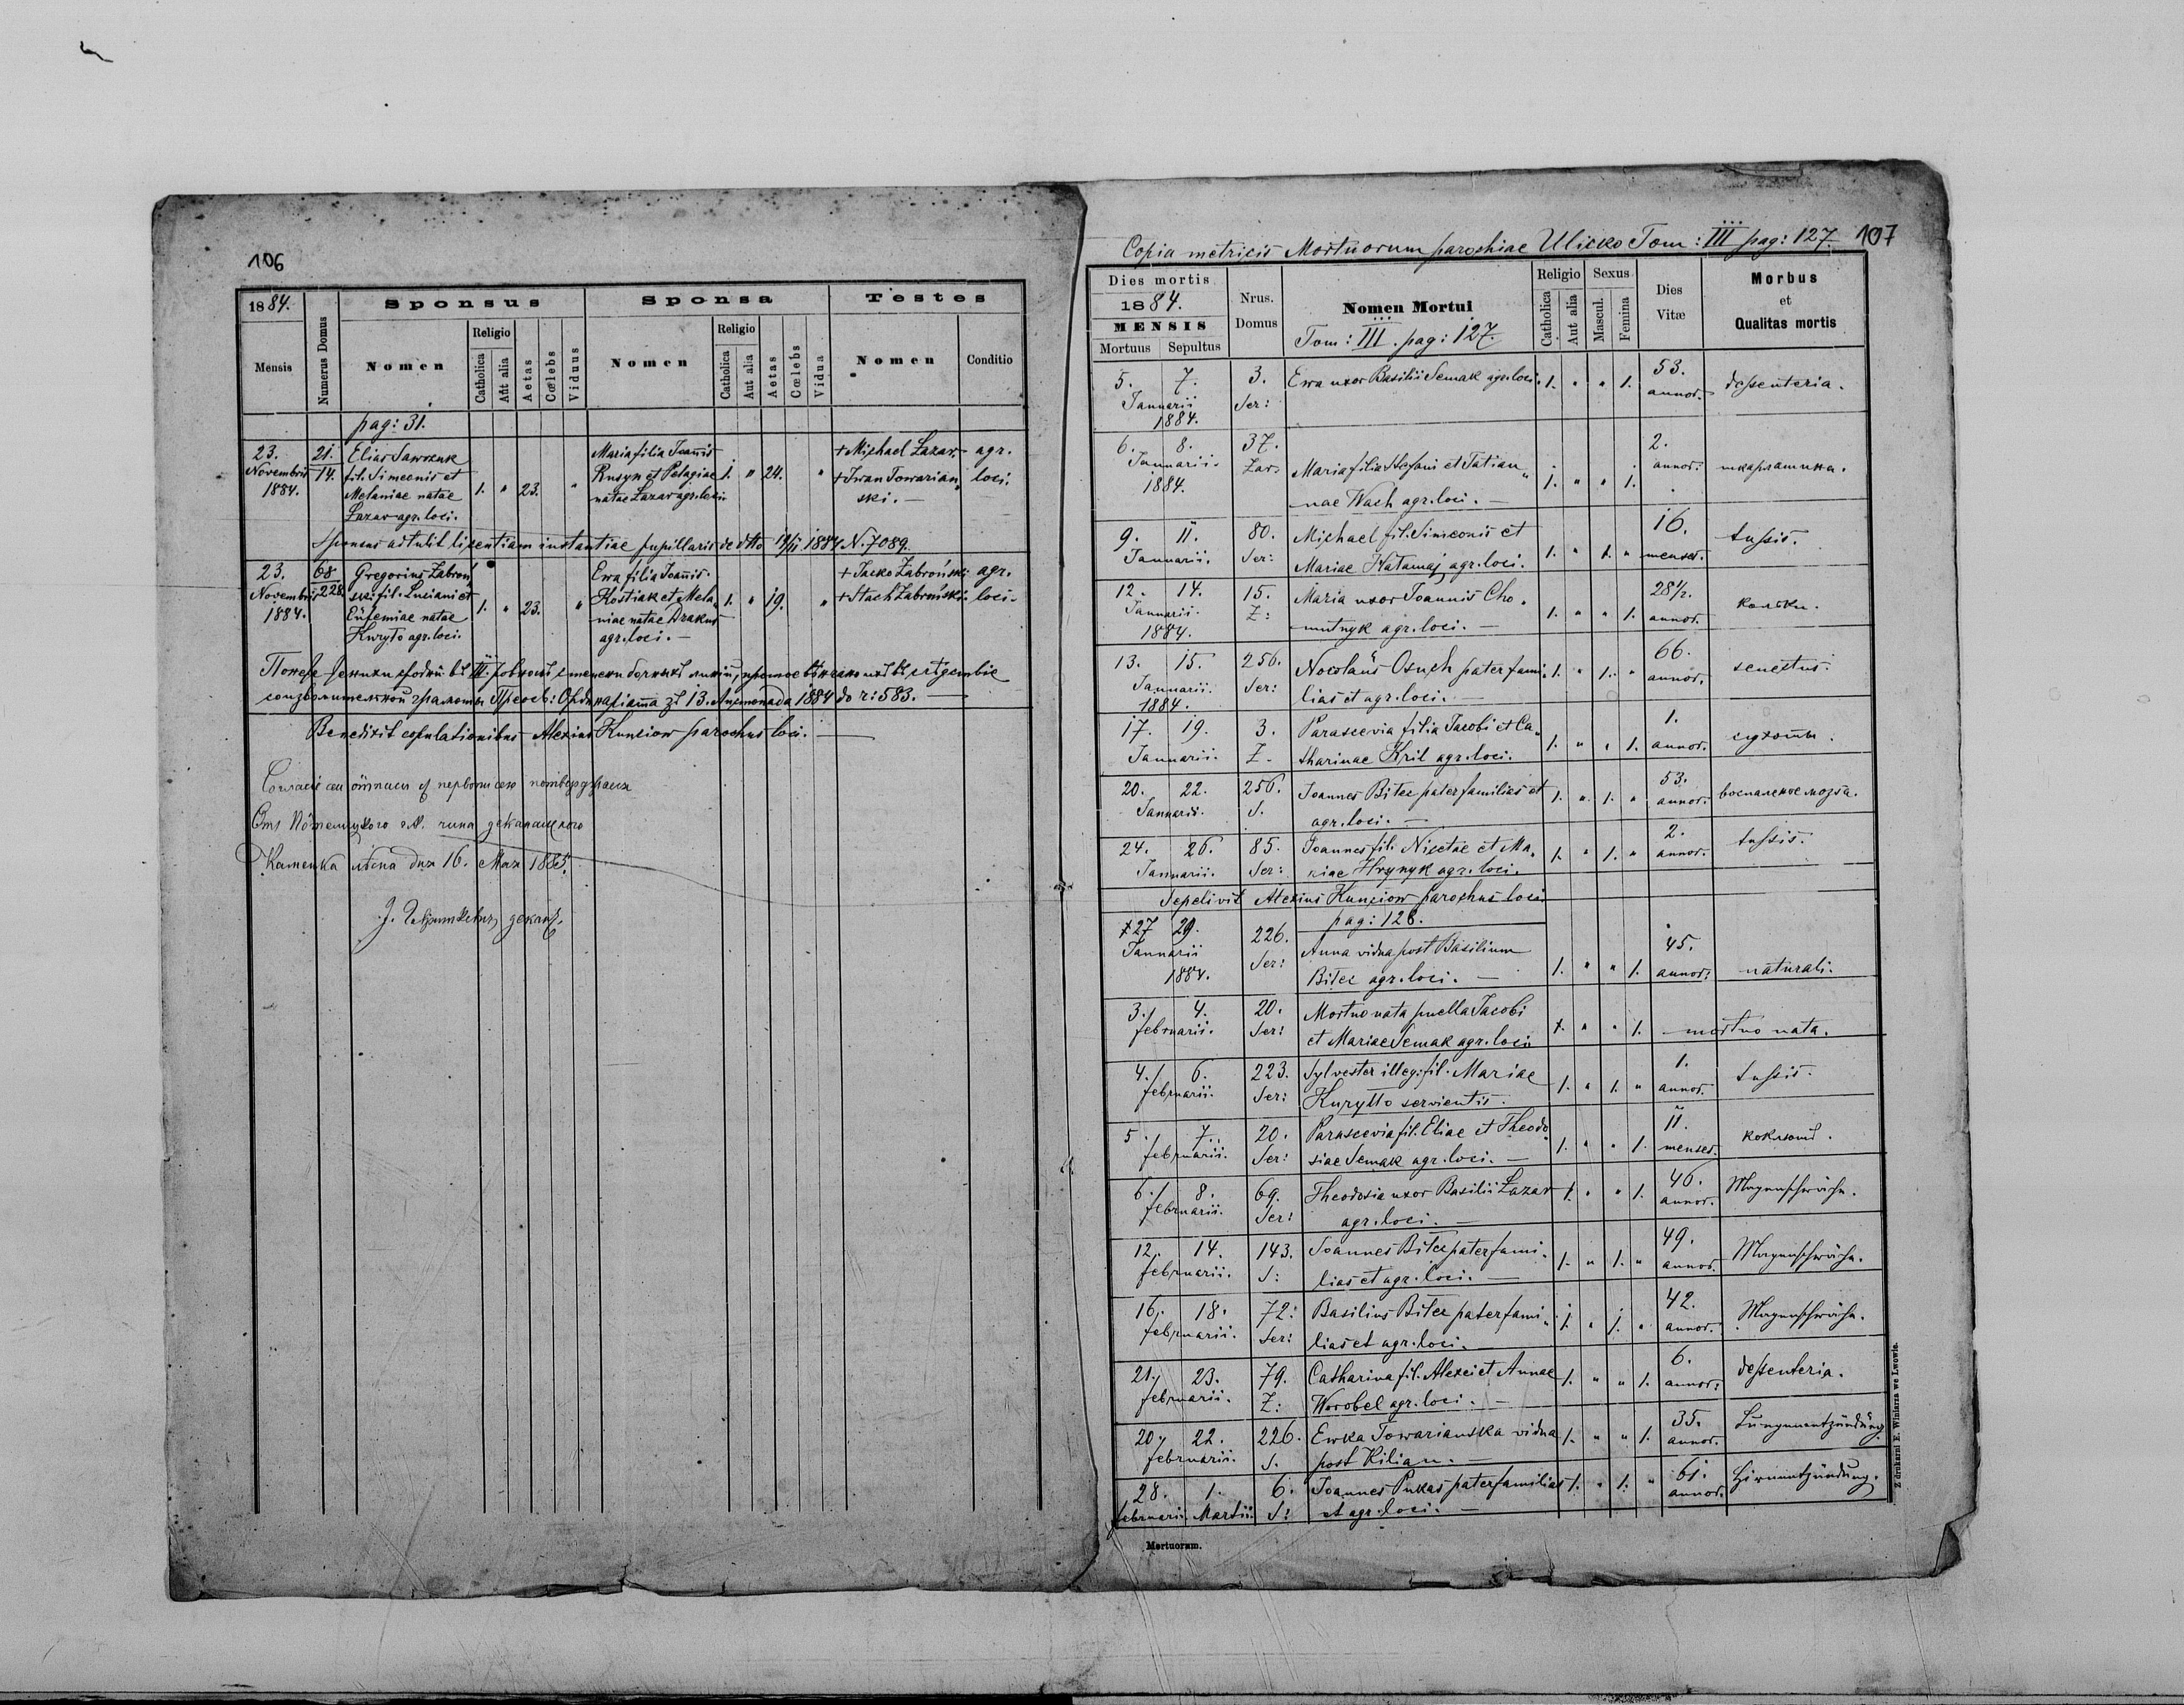 106
1884.
Mensis
Numerus Domus
Sponsus
Nomen
Religio
Catholica
Aut alia
Aetas
Cœlebs
Viduus
Sponsa
Nomen
Religio
Catholica
Aut alia
Aetas
Cœlebs
Vidua
Testes
Nomen
Conditio
pag: 31.
23. 21. Elias Sawczuk Maria filia Joannis + Michael Lazar agr.
Novembris 14. fil. Simeonis et Rusyn et Pelagiae 1. " 24. " + Iwan Towarian„ loci.
1884. Melaniae natae 1. " 23. " natae Lazar agr. loci. ski. —
Lazar agr. loci.
Sponsus attulit licentiam instantiae pupillaris de dtto 1884 N. 7089.
23. 68 Gregorius Zabroń„ Ewa filia Joannis + Jacko Zabroński agr.
Novembris 228. ski fil. Luciani et Kostiak et Mela„ 1. " 19. " + Stach Zabroński loci.
1884. Eufemiae natae 1. " 23. " niae natae Drakus
Kuryło agr. loci. agr. loci. —
1884 do ч: 583. —
Benedixit copulationibus Alexius Kunciow parochus loci. —
Каменка дня 16. Мая 1885.
деканъ
Copia metricis Mortuorum parochiae Ulicko Tom: III pag: 127. 107
Dies mortis
1884.
MENSIS
Mortuus Sepultus
Nrus. Domus
Nomen Mortui
Tom: III. pag: 127.
Religio
Catholica
Aut alia
Sexus
Mascul.
Femina
Dies Vitæ
Morbus
et
Qualitas mortis
5. 7. 3. Ewa uxor Basilii Semak agr. loci. 1. " " 1. 53. dessenteria.
Januarii Ser: annor.
1884.
6. 8. 37. 2.
Januarii. Zar. Maria filia Stefani et Tatian„ 1. " " 1. annor. шкарлатина.
1884. nae Wach agr. loci. —
9. 11. 80. Michael fil. Simeonis et 16. tussis.
Januarii. Ser: Mariae Hatamaj agr. loci. 1. " 1. " menses.
12. 14. 15. Maria uxor Joannis Cho„ 28½.
Januarii. Z: mutnyk agr. loci. — 1. " " 1. annor. кольки.
1884.
13. 15. 256. Nocolaus Osuch pater fami„ 1. " 1. " 66. senectus.
Januarii. Ser: lias et agr. loci. — annor.
1884.
17. 19. 3. Parascevia filia Jacobi et Ca„ 1.
Januarii. Z. tharinae Kril agr. loci. 1. " " 1. annor. сухоты.
20. 22. 256. Joannes Bitec pater familias et 1. " 1. " 53. воспаление мозга.
Januarii. S. agr. loci. — annor.
24. 26. 85. Joannes fil. Nicetae et Ma„ 1. " 1. " 2. tussis.
Januarii. Ser: riae Hrynyk agr. loci. annor.
Sepelivit Alexius Kunciow parochus loci
pag: 128.
27 29. 226. Anna vidua post Basilium 45.
Januarii Ser: Bitec agr. loci. — 1. " " 1. annor. naturali.
1884.
3. 4. 20. Mortuo nata puella Jacobi
februarii. Ser: et Mariae Semak agr. loci 1. " " 1. mortuo nata.
4. 6. 223. Sylvester illeg: fil. Mariae 1. tussis.
februarii. Ser: Kuryłło servientis. 1. " 1. " annor.
5. 7. 20. Parascevia fil. Eliae et Theodo„ 11.
februarii. Ser: siae Semak agr. loci. — 1. " " 1. menses. коклюшъ.
6. 8. 69. Theodosia uxor Basilii Lazar 1. " " 1. 46. Magenschwäche.
februarii. Ser: agr. loci. — annor.
12. 14. 143. Joannes Bitec pater fami„ 49. Magenschwäche.
februarii. S: lias et agr. loci. — 1. " 1. " annor.
16. 18. 72: Basilius Bitec pater fami„ 1. " 1. " 42. Magenschwäche.
februarii. Ser: lias et agr. loci. annor.
21. 23. 79. Catharina fil. Alexei et Annae 1. " " 1. 6. dessenteria.
februarii. Z: Worobel agr. loci. — annor:
20. 22. 226. Ewka Towarianska vidua 1. " " 1. 35. Lungenentzündung.
februarii. S. post Kilian. — annor.
28. 1. 6. Joannes Pukas pater familias 1. " 1. " 61. Hirnentzündung.
februarii. Martii. S: et agr. loci. — annor.
Mortuorum.
Z drukarni E. Winiarza we Lwowie.